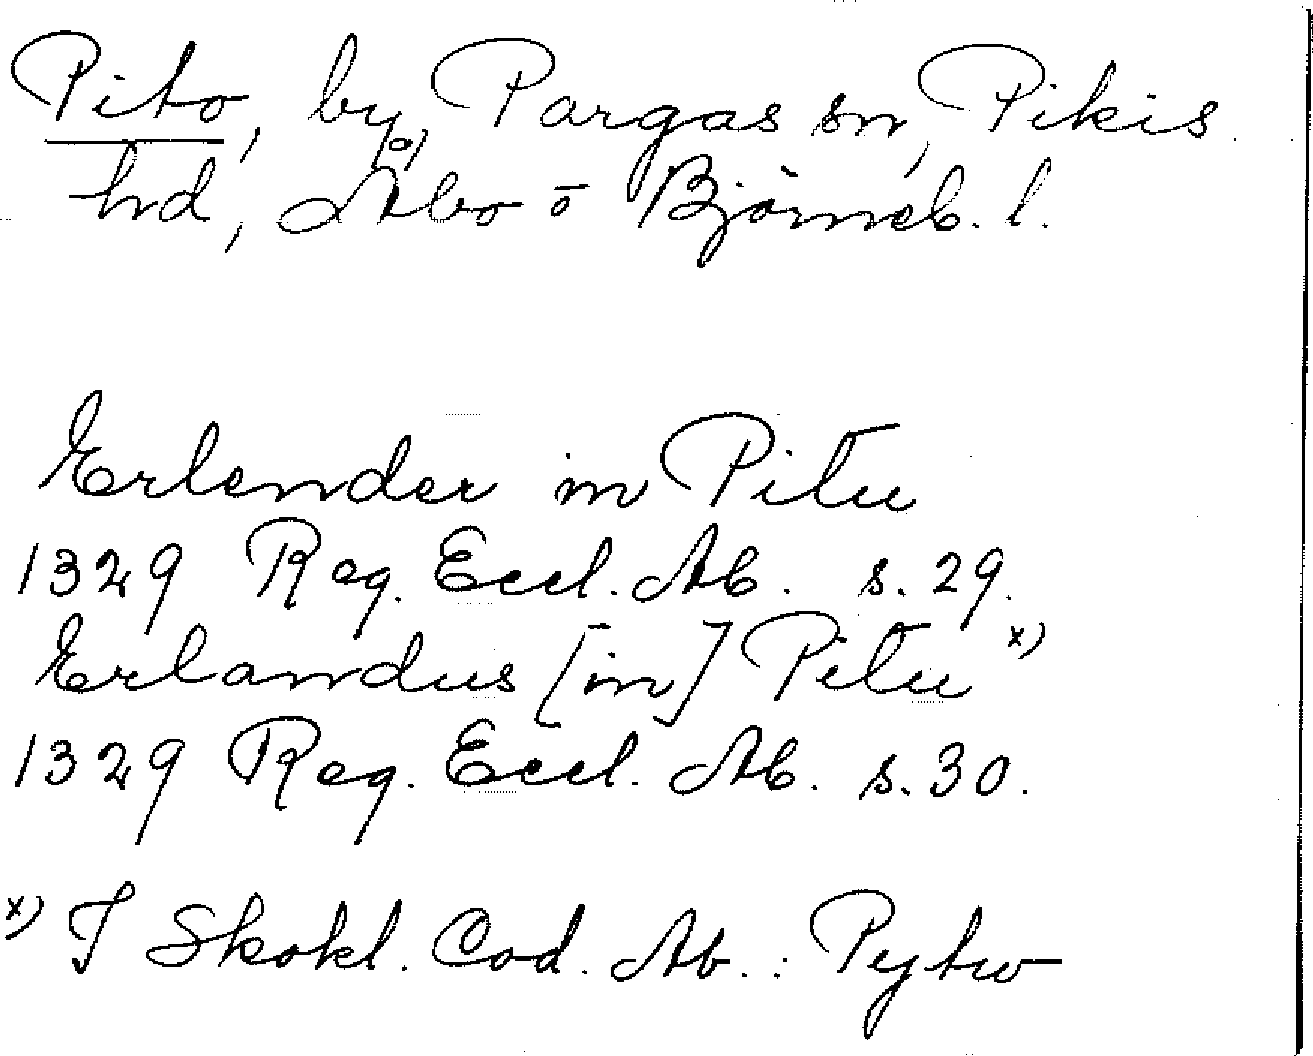 Pito, by, Pargas sn, Pikis
hd, Åbo o Björneb. l.
Erlender in Pitu
1329 Reg. Eccl. Ab. s. 29.
Erlandus [in] Pitu x)
1329 Reg. Eccl. Ab. s. 30.
x) I Skokl. Cod. Ab.: Pytw